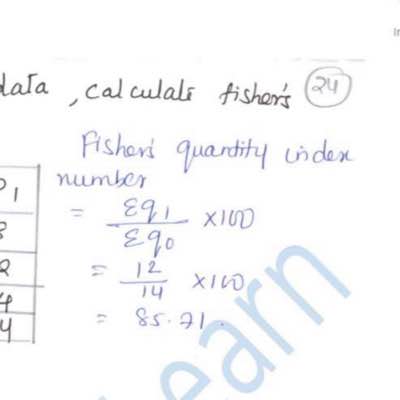 data, calculate fisher's 24
Fisher's quantity index
number
= Σq1 / Σq0 ×100
= 12 / 14 ×100
= 85.71.
P1
3
2
4
4
Learn
In